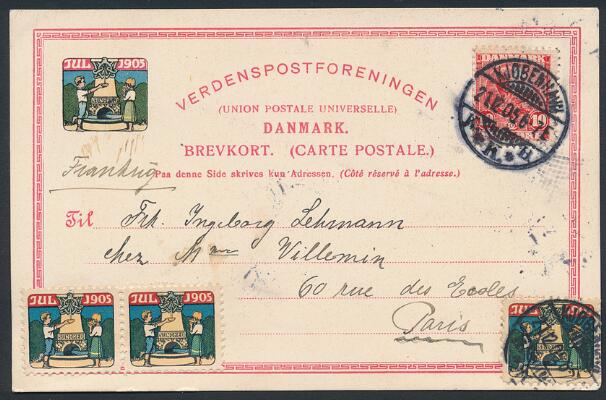 JUL 1905
VERDENSPOSTFORENINGEN
(UNION POSTALE UNIVERSELLE)
DANMARK.
BREVKORT. (CARTE POSTALE.)
Paa denne Side skrives kun Adressen. (Côté réservé à l'adresse.)
DANMARK
10
KJØBENHAVN
K.
Frankrig
Til Frk. Ingeborg Lehmann
chez Mme Villemin
60 rue des Ecoles
Paris
JUL 1905
JUL 1905